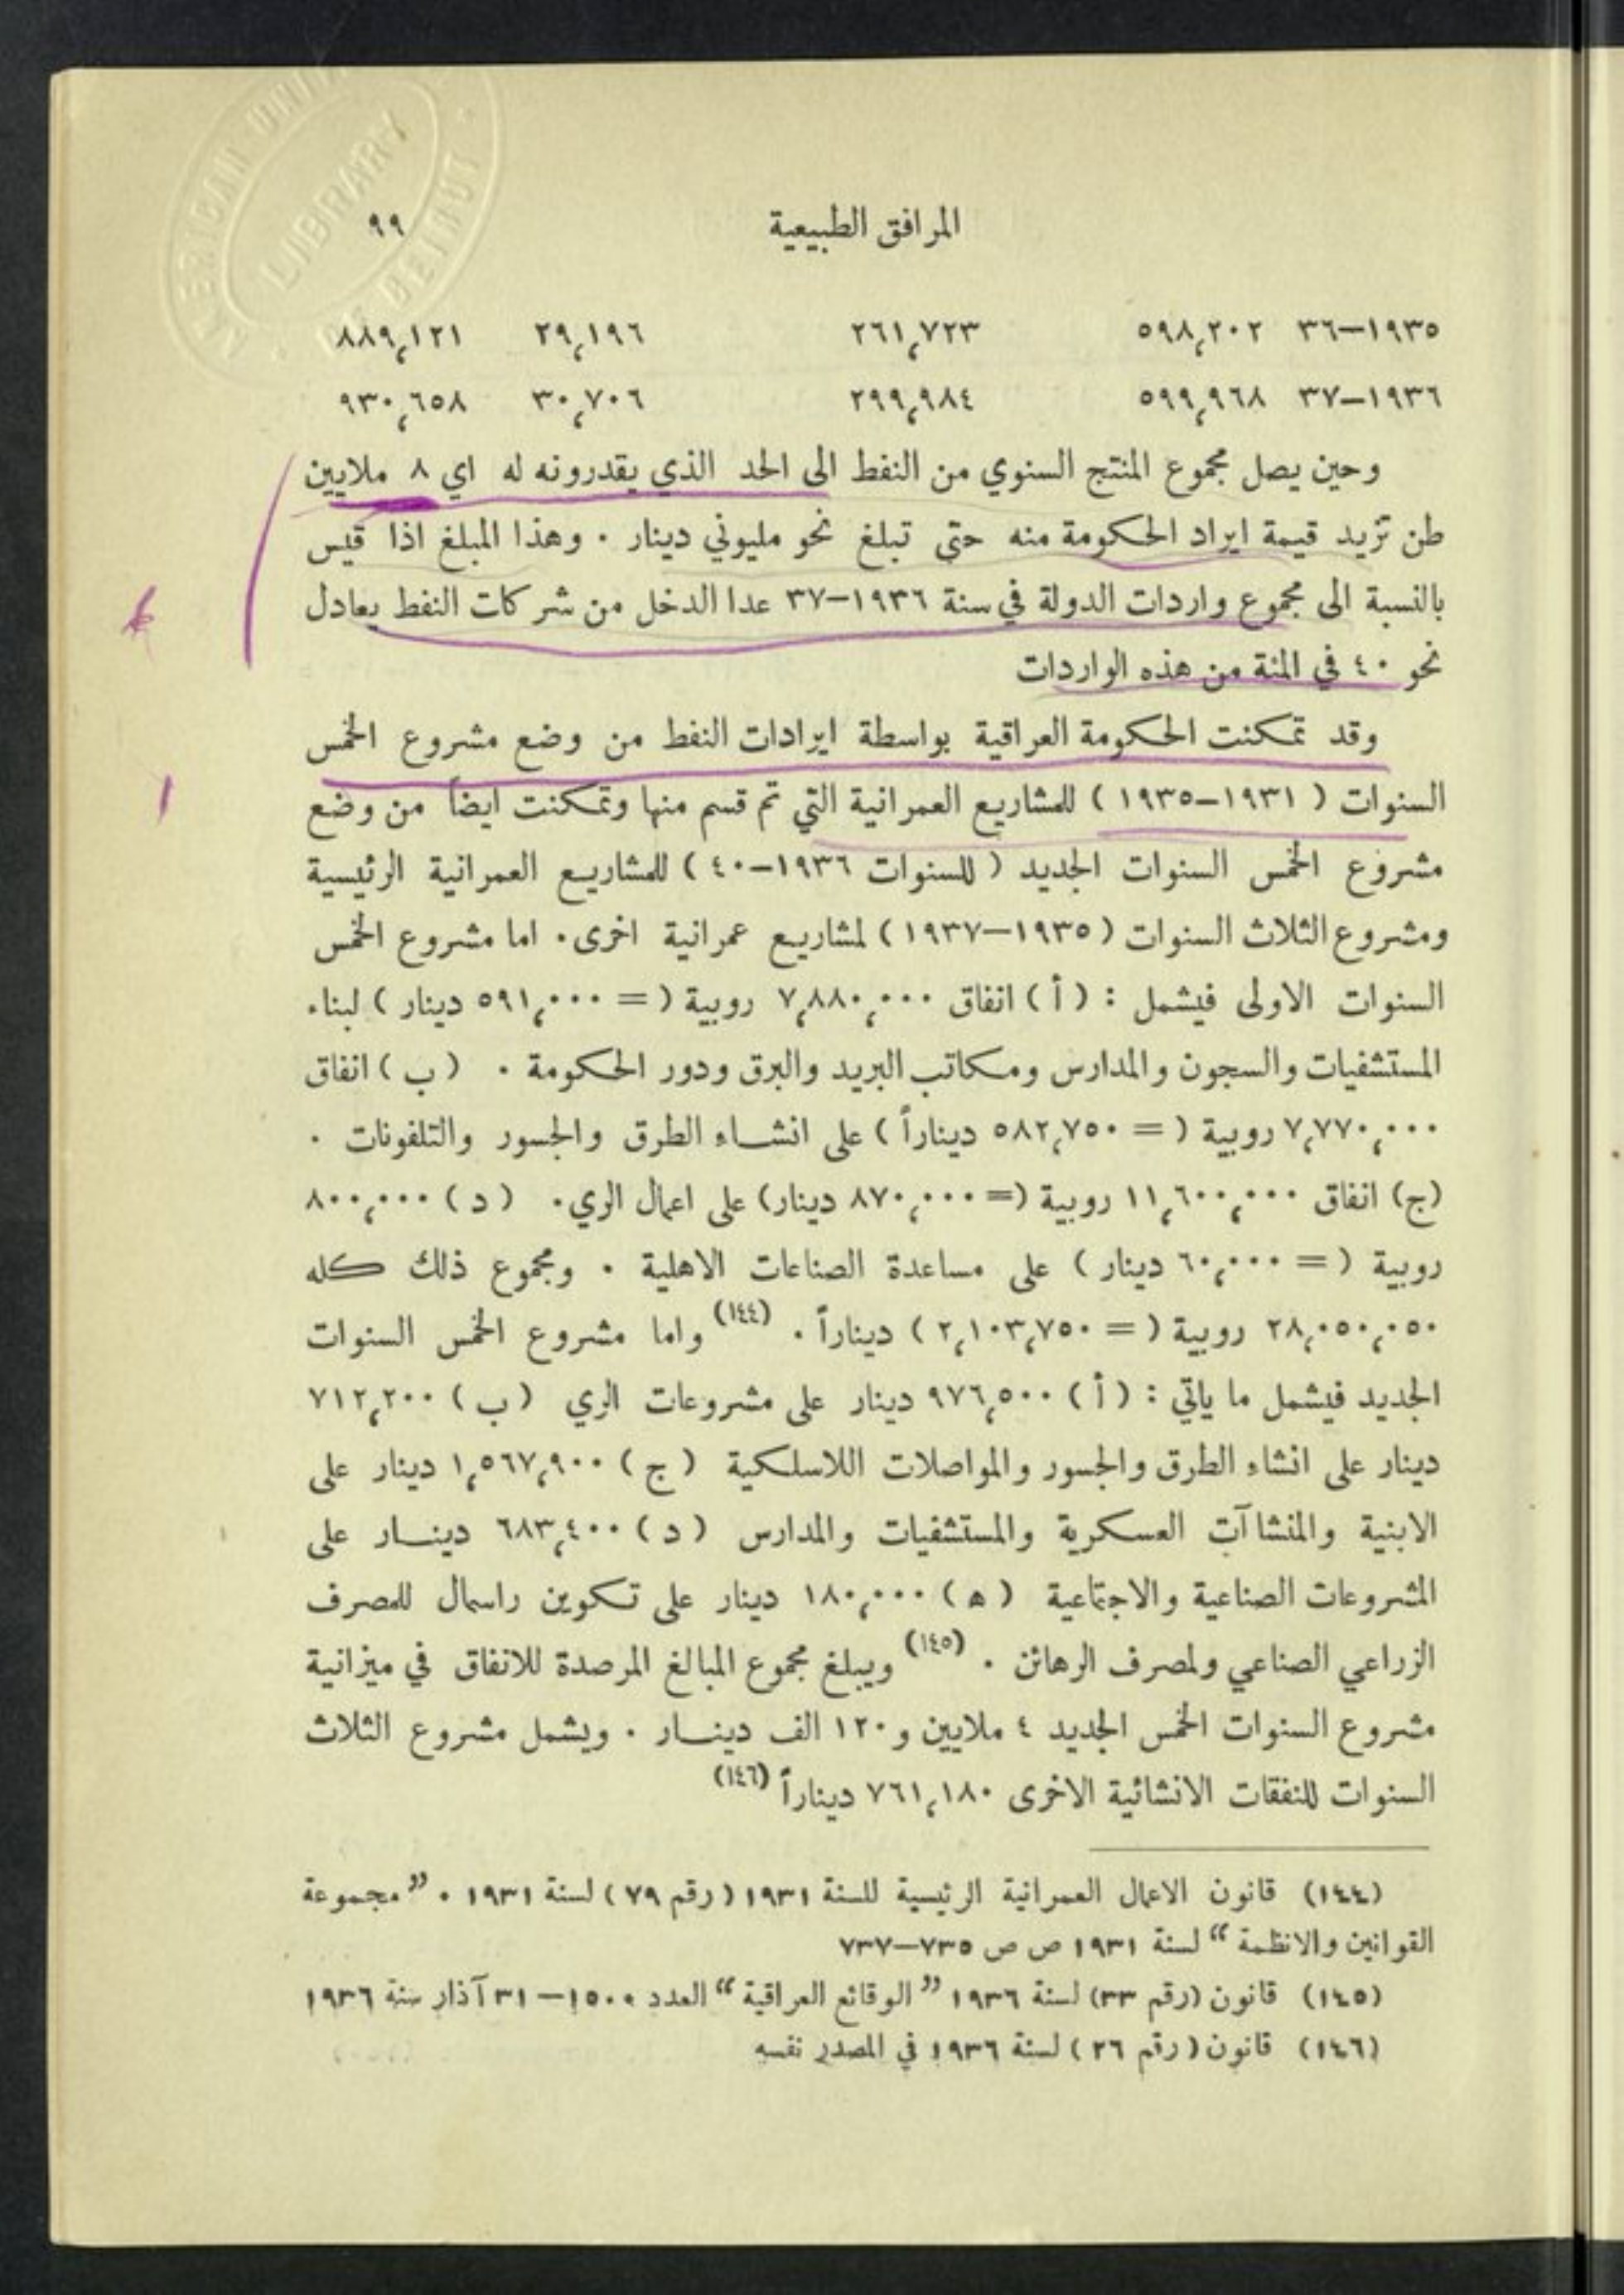 المرافق الطبيعية ٩٩
١٩٣٥–٣٦ ٥٩٨,٢٠٢ ٢٦١,٧٢٣ ٢٩,١٩٦ ٨٨٩,١٢١
١٩٣٦–٣٧ ٥٩٩,٩٦٨ ٢٩٩,٩٨٤ ٣٠,٧٠٦ ٩٣٠,٦٥٨
وحين يصل مجموع المنتج السنوي من النفط الى الحد الذي يقدرونه له اي ٨ ملايين
طن تزيد قيمة ايراد الحكومة منه حتى تبلغ نحو مليوني دينار . وهذا المبلغ اذا قيس
بالنسبة الى مجموع واردات الدولة في سنة ١٩٣٦–٣٧ عدا الدخل من شركات النفط يعادل
نحو ٤٠ في المئة من هذه الواردات
وقد تمكنت الحكومة العراقية بواسطة ايرادات النفط من وضع مشروع الخمس
السنوات ( ١٩٣١–١٩٣٥ ) للمشاريع العمرانية التي تم قسم منها وتمكنت ايضاً من وضع
مشروع الخمس السنوات الجديد ( للسنوات ١٩٣٦–٤٠ ) للمشاريع العمرانية الرئيسية
ومشروع الثلاث السنوات ( ١٩٣٥–١٩٣٧ ) لمشاريع عمرانية اخرى . اما مشروع الخمس
السنوات الاولى فيشمل : ( أ ) انفاق ٧,٨٨٠,٠٠٠ روبية ( = ٥٩١,٠٠٠ دينار ) لبناء
المستشفيات والسجون والمدارس ومكاتب البريد والبرق ودور الحكومة . ( ب ) انفاق
٧,٧٧٠,٠٠٠ روبية ( = ٥٨٢,٧٥٠ ديناراً ) على انشاء الطرق والجسور والتلفونات .
(ج) انفاق ١١,٦٠٠,٠٠٠ روبية (= ٨٧٠,٠٠٠ دينار) على اعمال الري . ( د ) ٨٠٠,٠٠٠
روبية ( = ٦٠,٠٠٠ دينار ) على مساعدة الصناعات الاهلية . ومجموع ذلك كله
٢٨,٠٥٠,٠٥٠ روبية ( = ٢,١٠٣,٧٥٠ ) ديناراً . (١٤٤) واما مشروع الخمس السنوات
الجديد فيشمل ما ياتي : ( أ ) ٩٧٦,٥٠٠ دينار على مشروعات الري ( ب ) ٧١٢,٢٠٠
دينار على انشاء الطرق والجسور والمواصلات اللاسلكية ( ج ) ١,٥٦٧,٩٠٠ دينار على
الابنية والمنشاآت العسكرية والمستشفيات والمدارس ( د ) ٦٨٣,٤٠٠ دينار على
المشروعات الصناعية والاجتماعية ( ه ) ١٨٠,٠٠٠ دينار على تكوين راسمال للمصرف
الزراعي الصناعي ولمصرف الرهائن . (١٤٥) ويبلغ مجموع المبالغ المرصدة للانفاق في ميزانية
مشروع السنوات الخمس الجديد ٤ ملايين و ١٢٠ الف دينار . ويشمل مشروع الثلاث
السنوات للنفقات الانشائية الاخرى ٧٦١,١٨٠ ديناراً (١٤٦)
(١٤٤) قانون الاعمال العمرانية الرئيسية للسنة ١٩٣١ ( رقم ٧٩ ) لسنة ١٩٣١ . ” مجموعة
القوانين والانظمة “ لسنة ١٩٣١ ص ص ٧٣٥–٧٣٧
(١٤٥) قانون (رقم ٣٣) لسنة ١٩٣٦ ” الوقائع العراقية “ العدد ١٥٠٠–٣١ آذار سنة ١٩٣٦
(١٤٦) قانون ( رقم ٢٦ ) لسنة ١٩٣٦ في المصدر نفسه